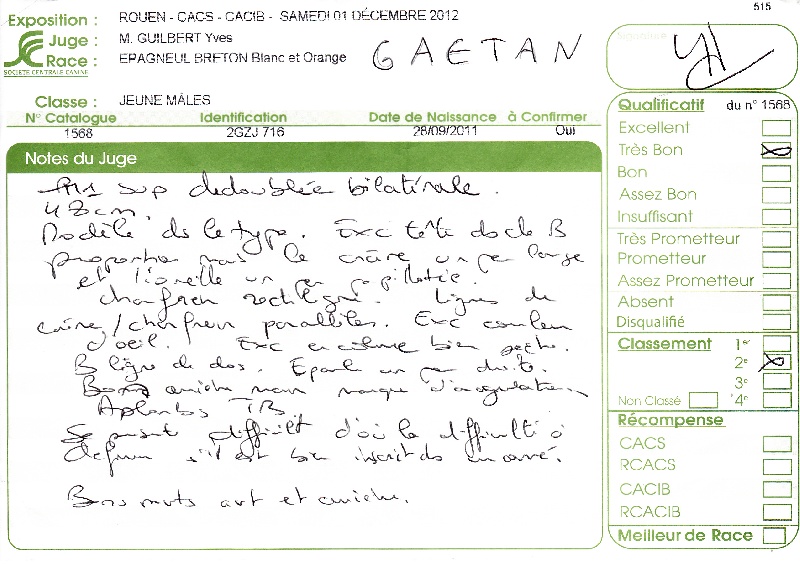 515
Exposition : ROUEN - CACS - CACIB - SAMEDI 01 DÉCEMBRE 2012
Juge : M. GUILBERT Yves
Race : EPAGNEUL BRETON Blanc et Orange
SOCIETE CENTRALE CANINE
GAETAN
Signature
Classe : JEUNE MÂLES
N° Catalogue Identification Date de Naissance à Confirmer
1568 2GZJ 716 28/09/2011 Oui
Notes du Juge
PM1 sup dedoublée bilatérale.
48cm.
Modèle ds le type. Exc tête ds de B
proportion mais le crâne un peu large
et l'oreille un peu papillotée.
chanfrein rectiligne. Lignes du
crâne/chanfrein parallèles. Exc couleur
d'oeil. Exc encolure bien sèche.
B ligne de dos. Epaule un peu droite.
Bon arrière main marque d'angulation
Aplombs TB.
Se présent difficilt d'où la difficulté à
s'il est bien inscrit ds un carré.
Bons mvts avt et arrière.
Qualificatif du n° 1568
Excellent
Très Bon
Bon
Assez Bon
Insuffisant
Très Prometteur
Prometteur
Assez Prometteur
Absent
Disqualifié
Classement 1er
2e
3e
Non Classé 4e
Récompense
CACS
RCACS
CACIB
RCACIB
Meilleur de Race